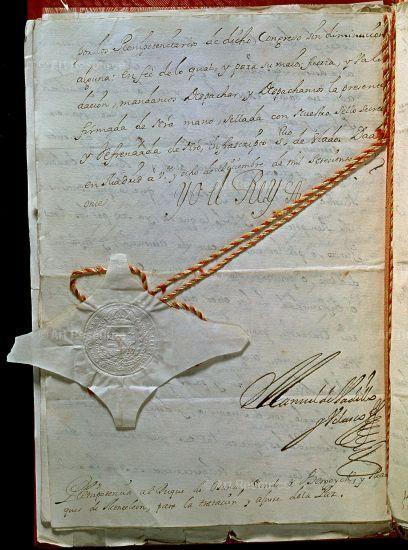 por los Plenipotenciarios de dicho Congreso sin diminucion
alguna; En feé de lo qual, y para su maior fuerza, y Vali-
dacion, mandamos Despachar, y Despachamos la presente
firmada de Nra mano, Sellada con Nuestro Sello Secreto
y Refrendada de Nro infrascripto Srio de Estado. Dada
en Madrid a de Diciembre de mil Setecientos
once
YO EL REY
Manuel de Vadillo
y Velasco
Plenipotencia al Duque de Osuna, Conde de Bergeyck, y Mar-
ques de Monteleon, para la tratacion, y ajuste de la Paz.